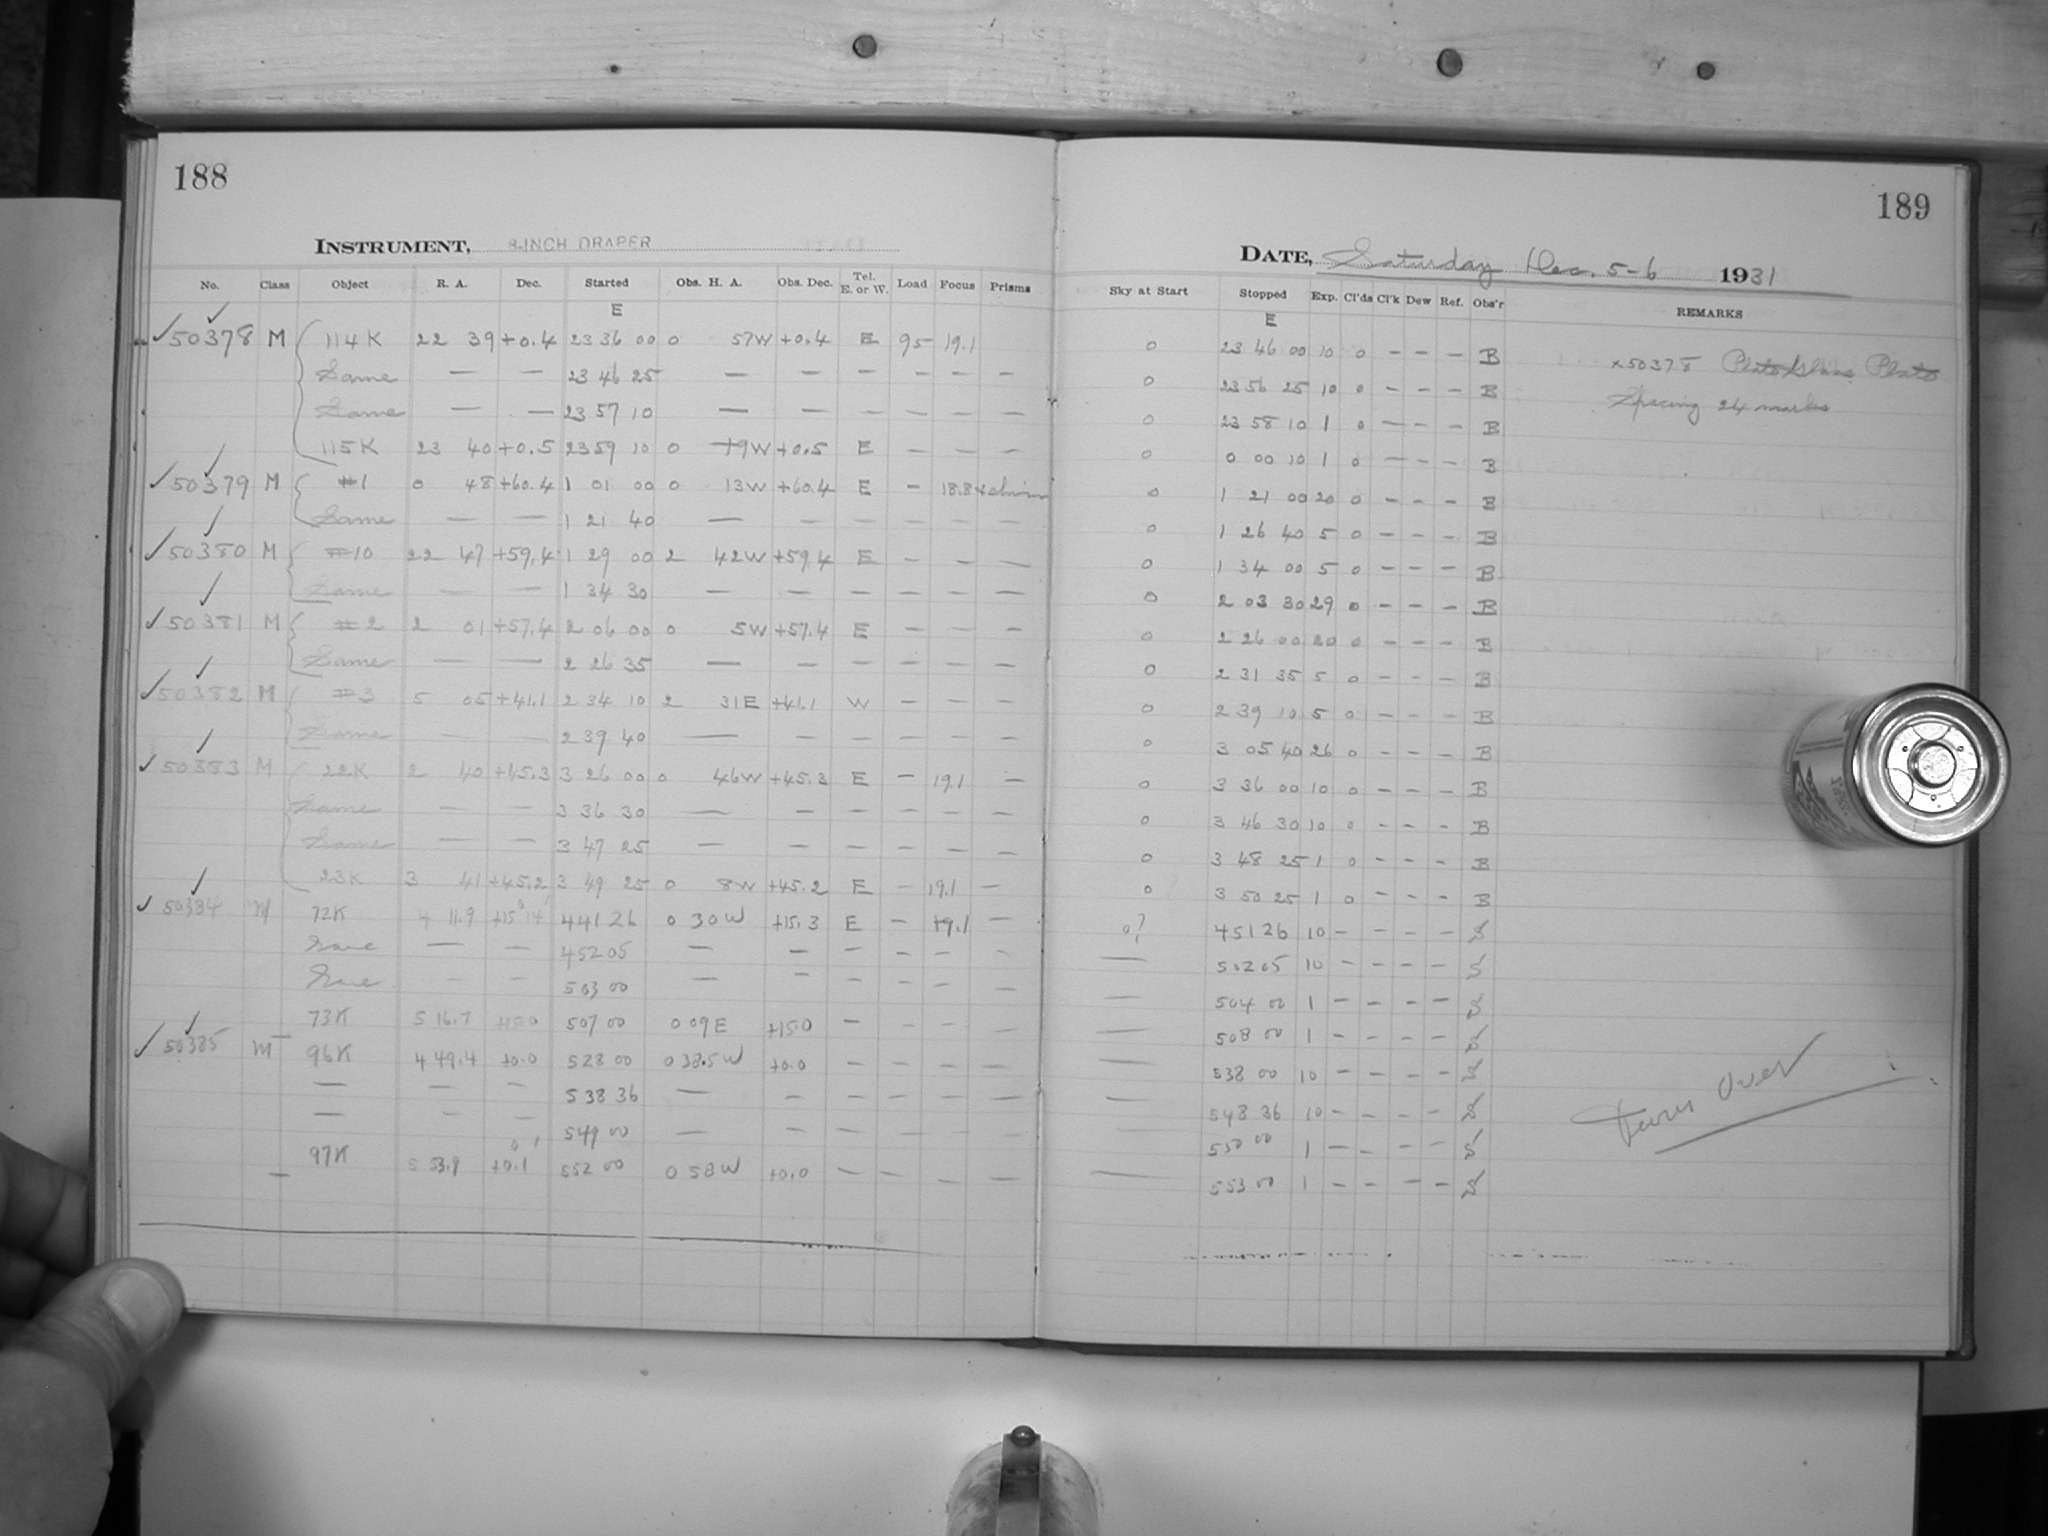 188
INSTRUMENT, 8-INCH DRAPER
No. Class Object R. A. Dec. Started Obs. H. A. Obs. Dec. Tel. E. or W. Load Focus Prisms
E
50378 M 114K 22 39 +0.4 23 36 00 0 57W +0.4 E 95 19.1
Same — — 23 46 25 — — — — — —
Same — — 23 57 10 — — — — — —
115K 23 40 +0.5 23 59 10 0 19W +0.5 E — — —
50379 M #1 0 48 +60.4 1 01 00 0 13W +60.4 E — 18.8
Same — — 1 21 40 — — — — — —
50380 M #10 22 47 +59.4 1 29 00 2 42W +59.4 E — — —
Same — — 1 34 30 — — — — — —
50381 M #2 2 01 +57.4 2 06 00 0 5W +57.4 E — — —
Same — — 2 26 35 — — — — — —
50382 M #3 5 05 +41.1 2 34 10 2 31E +41.1 W — — —
Same — — 2 39 40 — — — — — —
50383 M 22K 2 40 +45.3 3 26 00 0 46W +45.3 E — 19.1 —
Same — — 3 36 30 — — — — — —
Same — — 3 47 25 — — — — — —
23K 3 41 +45.2 3 49 25 0 8W +45.2 E — 19.1 —
50384 M 72K 4 11.9 +15° 14' 4 41 26 0 30W +15.3 E — 19.1 —
Same — — 4 52 05 — — — — — —
Same — — 5 03 00 — — — — — —
73K 5 16.7 +15.0 5 07 00 0 09E +15.0 — — — —
50385 M 96K 4 49.4 +0.0 5 28 00 0 38.5W +0.0 — — — —
— — — 5 38 36 — — — — — —
— — — 5 49 00 — — — — — —
97K 5 53.9 +0.1 5 52 00 0 58W +0.0 — — — —
189
DATE, Saturday Dec. 5-6 1931
Sky at Start Stopped Exp. Cl'ds Cl'k Dew Ref. Obs'r REMARKS
E
0 23 46 00 10 0 — — — B x50378
0 23 56 25 10 0 — — — B Spacing 24 marks
0 23 58 10 1 0 — — — B
0 0 00 10 1 0 — — — B
0 1 21 00 20 0 — — — B
0 1 26 40 5 0 — — — B
0 1 34 00 5 0 — — — B
0 2 03 30 29 0 — — — B
0 2 26 00 20 0 — — — B
0 2 31 35 5 0 — — — B
0 2 39 10 5 0 — — — B
0 3 05 40 26 0 — — — B
0 3 36 00 10 0 — — — B
0 3 46 30 10 0 — — — B
0 3 48 25 1 0 — — — B
0 3 50 25 1 0 — — — B
0? 4 51 26 10 — — — — S
— 5 02 05 10 — — — — S
— 5 04 00 1 — — — — S
— 5 08 00 1 — — — — S
— 5 38 00 10 — — — — S
— 5 48 36 10 — — — — S
— 5 50 00 1 — — — — S
— 5 53 00 1 — — — — S
Turn Over